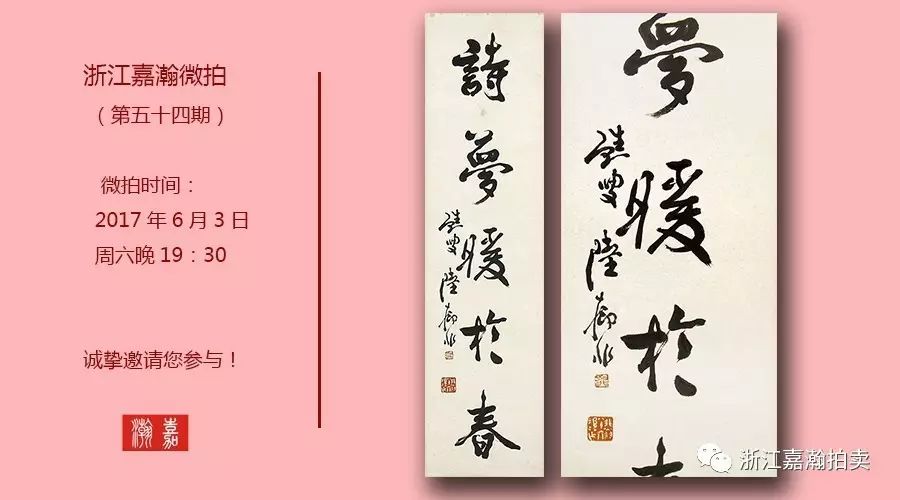 浙江嘉瀚微拍
（第五十四期）
微拍时间：
2017年6月3日
周六晚19：30
诚挚邀请您参与！
嘉瀚
詩夢暖於春
叟陸抑非
夢暖於春
叟陸抑非
浙江嘉瀚拍卖